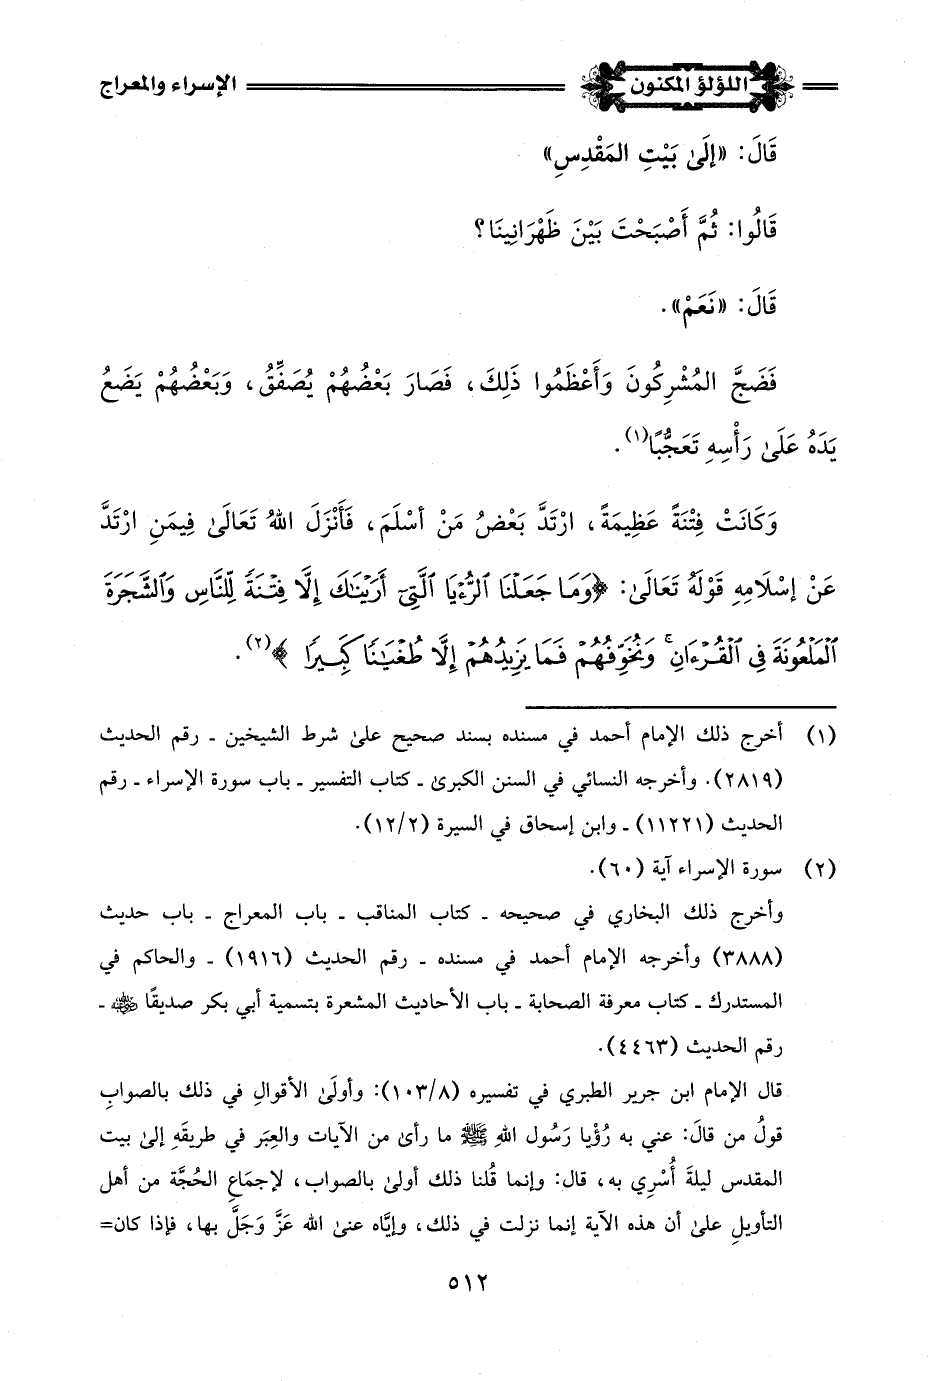 اللؤلؤ المكنون الإسراء والمعراج
قَالَ: «إِلَىٰ بَيْتِ المَقْدِسِ»
قَالُوا: ثُمَّ أَصْبَحْتَ بَيْنَ ظَهْرَانِينَا؟
قَالَ: «نَعَمْ».
فَضَجَّ المُشْرِكُونَ وَأَعْظَمُوا ذَلِكَ، فَصَارَ بَعْضُهُمْ يُصَفِّقُ، وَبَعْضُهُمْ يَضَعُ
يَدَهُ عَلَىٰ رَأْسِهِ تَعَجُّبًا(١).
وَكَانَتْ فِتْنَةً عَظِيمَةً، ارْتَدَّ بَعْضُ مَنْ أَسْلَمَ، فَأَنْزَلَ اللهُ تَعَالَىٰ فِيمَنِ ارْتَدَّ
عَنْ إِسْلَامِهِ قَوْلَهُ تَعَالَىٰ: ﴿وَمَا جَعَلْنَا ٱلرُّءْيَا ٱلَّتِىٓ أَرَيْنَٰكَ إِلَّا فِتْنَةً لِّلنَّاسِ وَٱلشَّجَرَةَ
ٱلْمَلْعُونَةَ فِى ٱلْقُرْءَانِ ۚ وَنُخَوِّفُهُمْ فَمَا يَزِيدُهُمْ إِلَّا طُغْيَٰنًا كَبِيرًا﴾(٢).
(١) أخرج ذلك الإمام أحمد في مسنده بسند صحيح علىٰ شرط الشيخين ـ رقم الحديث
(٢٨١٩). وأخرجه النسائي في السنن الكبرىٰ ـ كتاب التفسير ـ باب سورة الإسراء ـ رقم
الحديث (١١٢٢١) ـ وابن إسحاق في السيرة (١٢/٢).
(٢) سورة الإسراء آية (٦٠).
وأخرج ذلك البخاري في صحيحه ـ كتاب المناقب ـ باب المعراج ـ باب حديث
(٣٨٨٨) وأخرجه الإمام أحمد في مسنده ـ رقم الحديث (١٩١٦) ـ والحاكم في
المستدرك ـ كتاب معرفة الصحابة ـ باب الأحاديث المشعرة بتسمية أبي بكر صديقًا ﵁ ـ
رقم الحديث (٤٤٦٣).
قال الإمام ابن جرير الطبري في تفسيره (١٠٣/٨): وأولَىٰ الأقوالِ في ذلك بالصوابِ
قولُ من قالَ: عني به رُؤْيا رَسُول اللهِ ﷺ ما رأىٰ من الآيات والعِبَر في طريقَهِ إلىٰ بيت
المقدس ليلةَ أُسْرِي به، قال: وإنما قُلنا ذلك أولىٰ بالصواب، لإجمَاعِ الحُجَّة من أهل
التأويلِ علىٰ أن هذه الآية إنما نزلت في ذلك، وإيَّاه عنىٰ الله عَزَّ وَجَلَّ بها، فإذا كان=
٥١٢